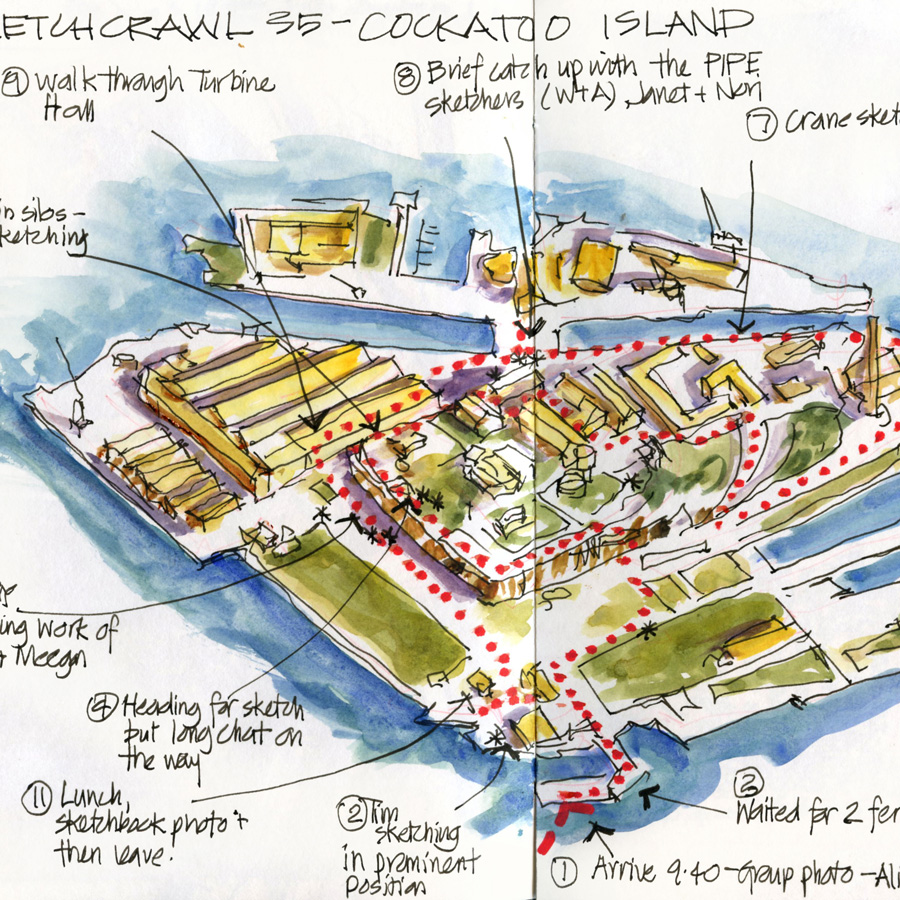 ETCHCRAWL 35 - COCKATOO ISLAND
⑨ Walk through Turbine
Hall
⑧ Brief catch up with the PIPE
sketchers (W+A), Janet + Nori
⑦ Crane sket
in sibs -
ketching
ing work of
+ Meegan
④ Heading for sketch
but long chat on
the way
⑪ Lunch,
sketchbook photo +
then leave.
② Tim
sketching
in prominent
position
③
Waited for 2 fer
① Arrive 9.40 - Group photo - Ali